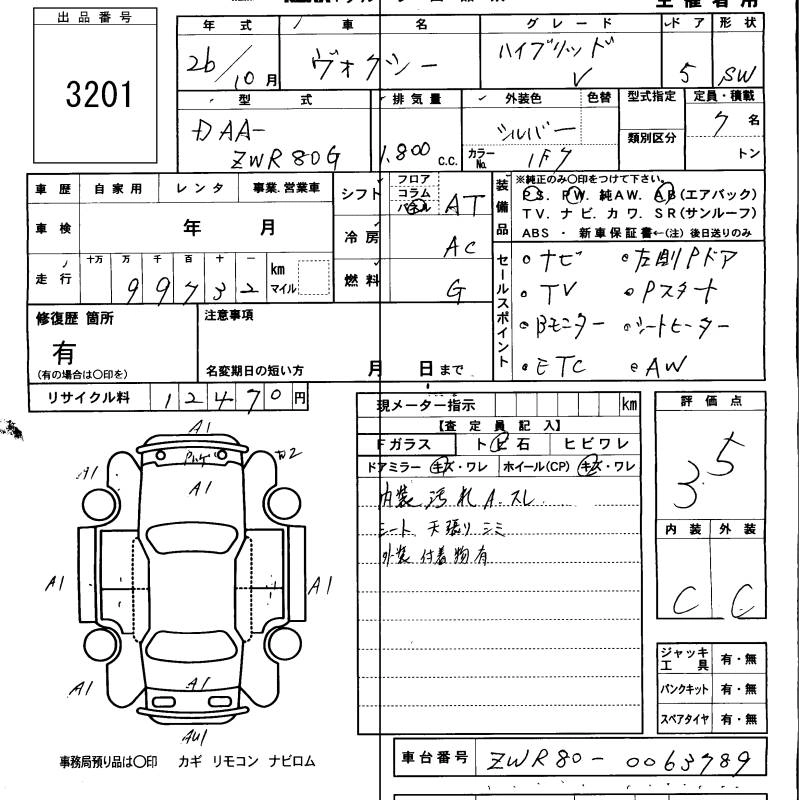 出品番号
3201
年式 車名 グレード ドア 形状
26/10月 ヴォクシー ハイブリッド V 5 SW
型式 排気量 外装色 色替 型式指定 定員・積載
DAA-
ZWR80G 1,800 c.c. シルバー 類別区分 7名
カラーNo. 1F7 トン
車歴 自家用 レンタ 事業.営業車
シフト フロア コラム パネル AT
車検 年 月
冷房 AC
走行 十万 万 千 百 十 一 km マイル
99732
燃料 G
装備品
※純正のみ○印をつけて下さい。
PS. PW. 純AW. AB(エアバック)
TV. ナビ. カワ. SR(サンルーフ)
ABS ・ 新車保証書←(注) 後日送りのみ
セールスポイント
・ナビ ・左側Pドア
・TV ・Pスタート
・Bモニター ・シートヒーター
・ETC ・AW
修復歴 箇所
有
(有の場合は○印を)
注意事項
名変期日の短い方 月 日まで
リサイクル料 12470円
現メーター指示 km
【査定員記入】
Fガラス トビ石 ヒビワレ
ドアミラー キズ・ワレ ホイール(CP) キズ・ワレ
内装 汚れ A.スレ
シート 天張り シミ
外装 付着物有
評価点
3.5
内装 外装
C C
A1
A1
A1
A1 A1
A1 A1
AU1
ジャッキ工具 有・無
パンクキット 有・無
スペアタイヤ 有・無
事務局預り品は○印 カギ リモコン ナビロム
車台番号 ZWR80-0063789